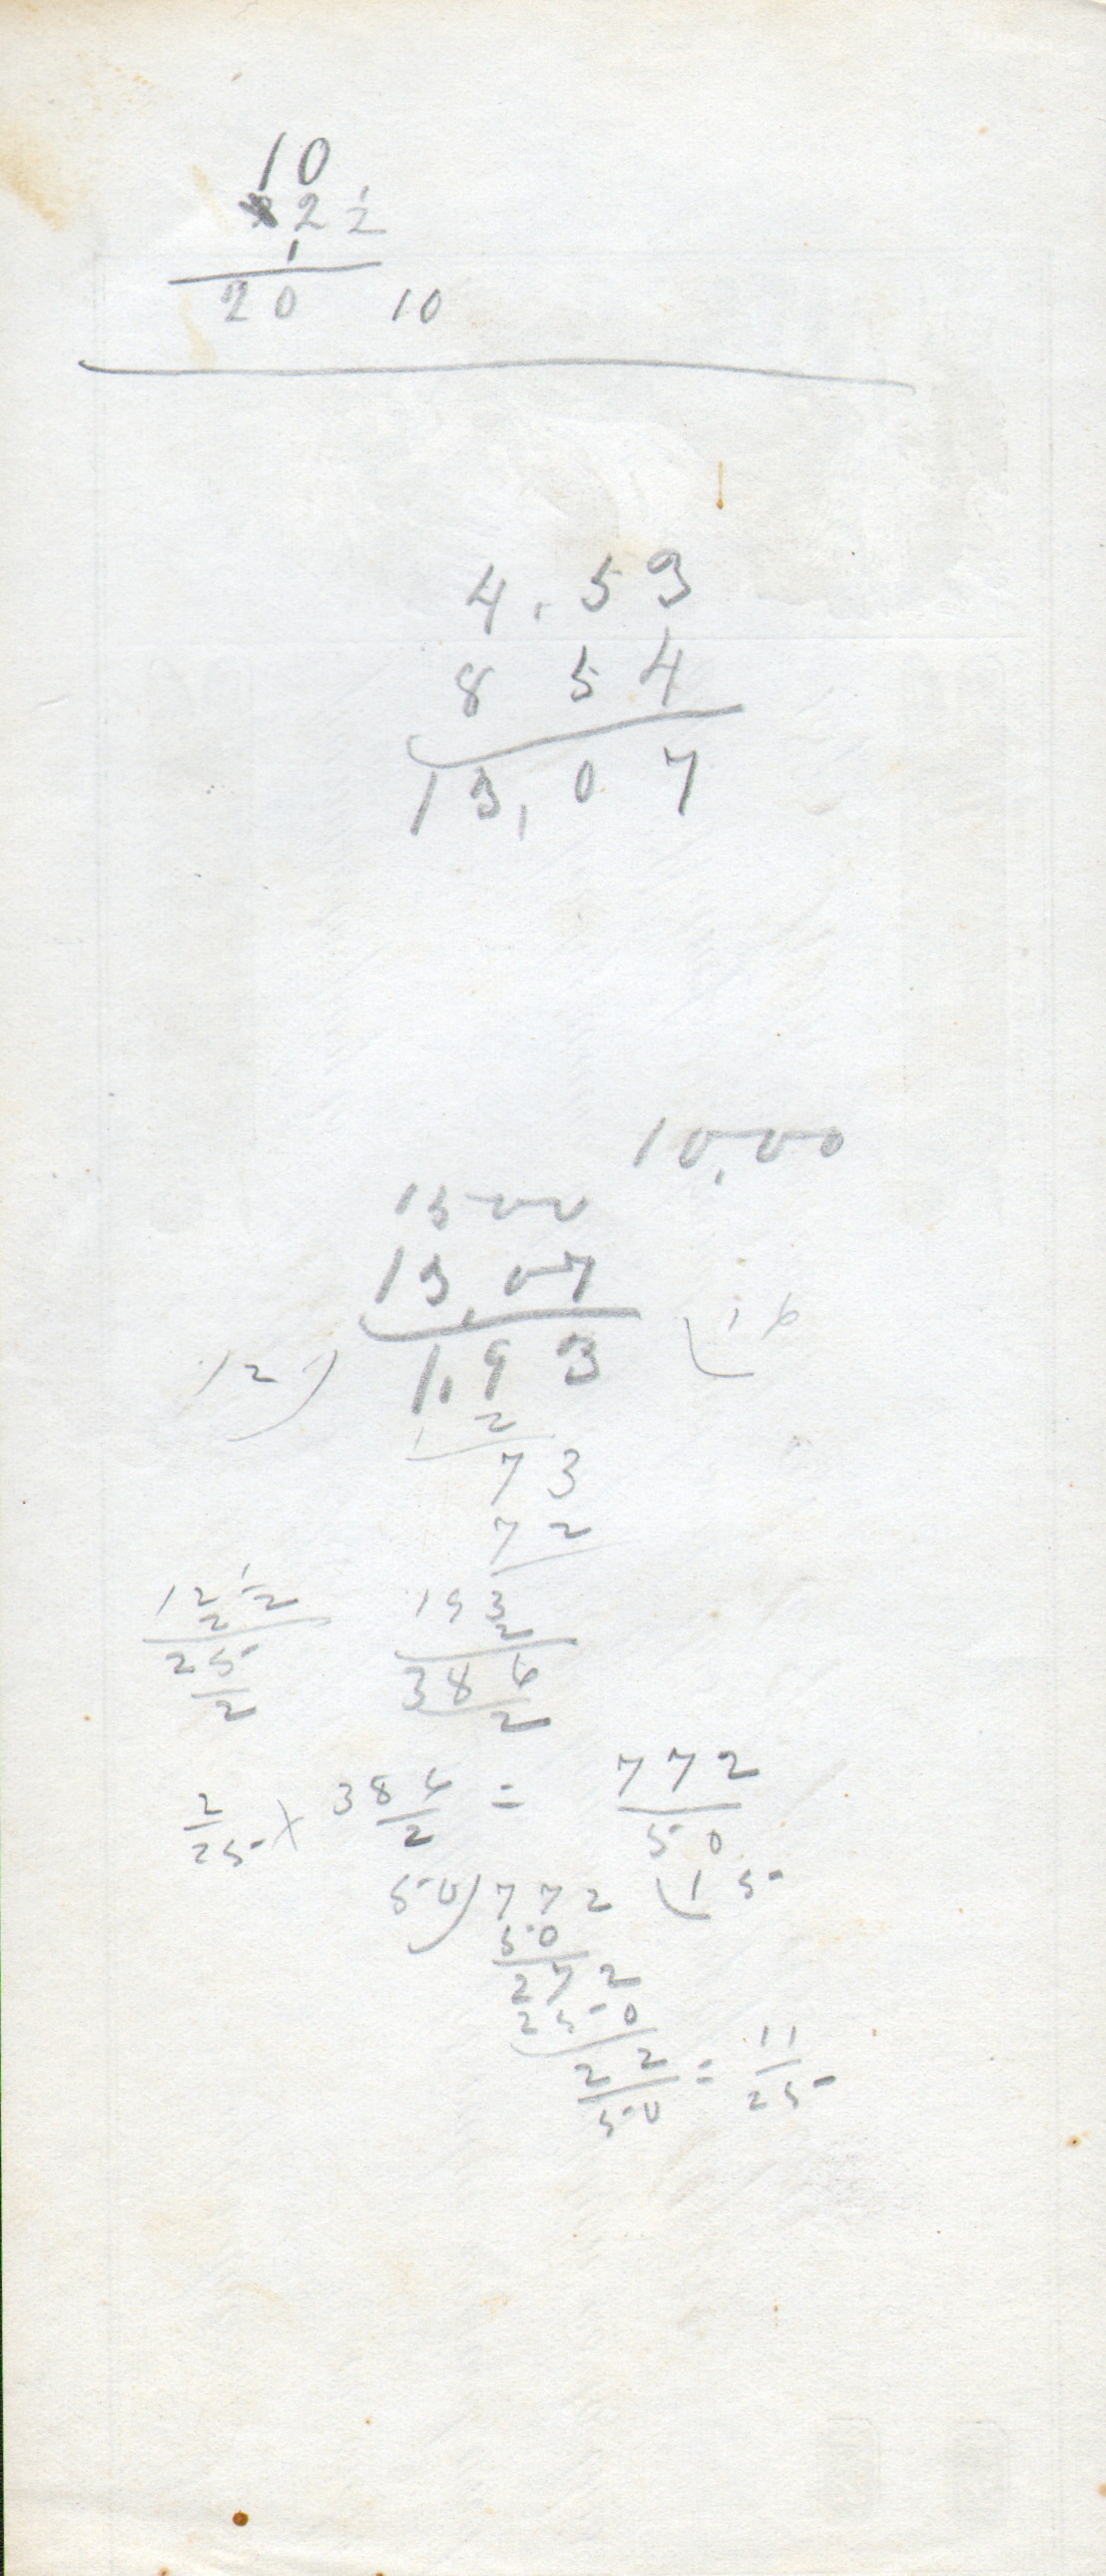 10
2 1/2
1
20 10
4.53
8 54
13,07
10,00
1500
13,07
12) 1.93 (16
1 2
73
72
12 1/2 193
2 2
25 386
2 2
2/25 × 386/2 = 772/50
50) 772 (15
50
272
250
22/50 = 11/25